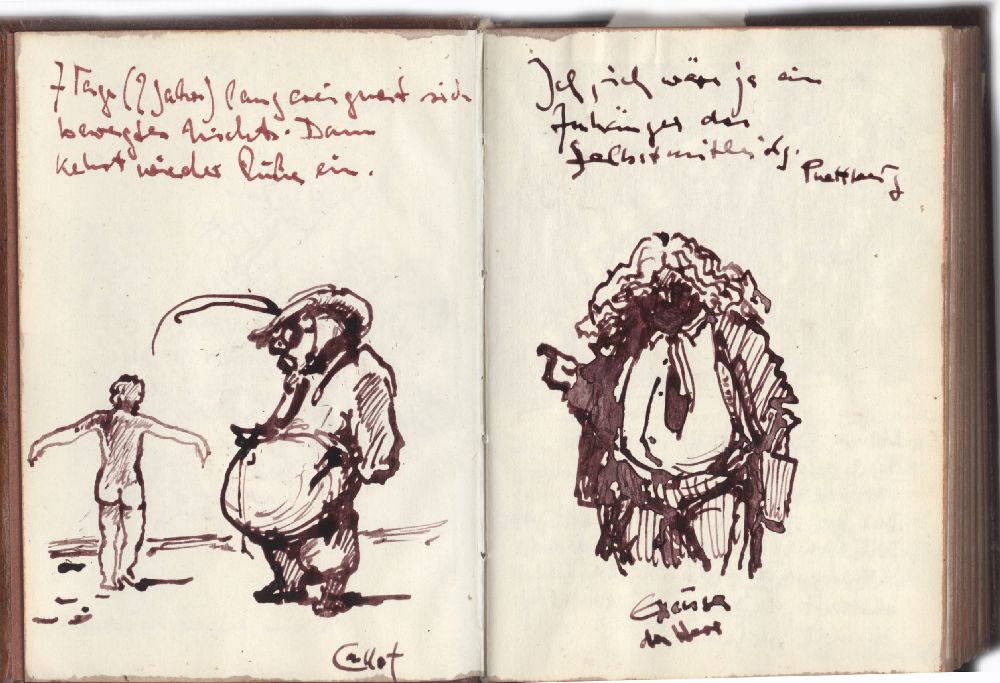 7 Tage (7 Jahre) lang ereignest sich
bewegtes Nichts. Dann
kehrt wieder Ruhe ein.
Callot
Ich, ich wäre ja ein
Anhänger des
Selbstmitleids.
der Herr